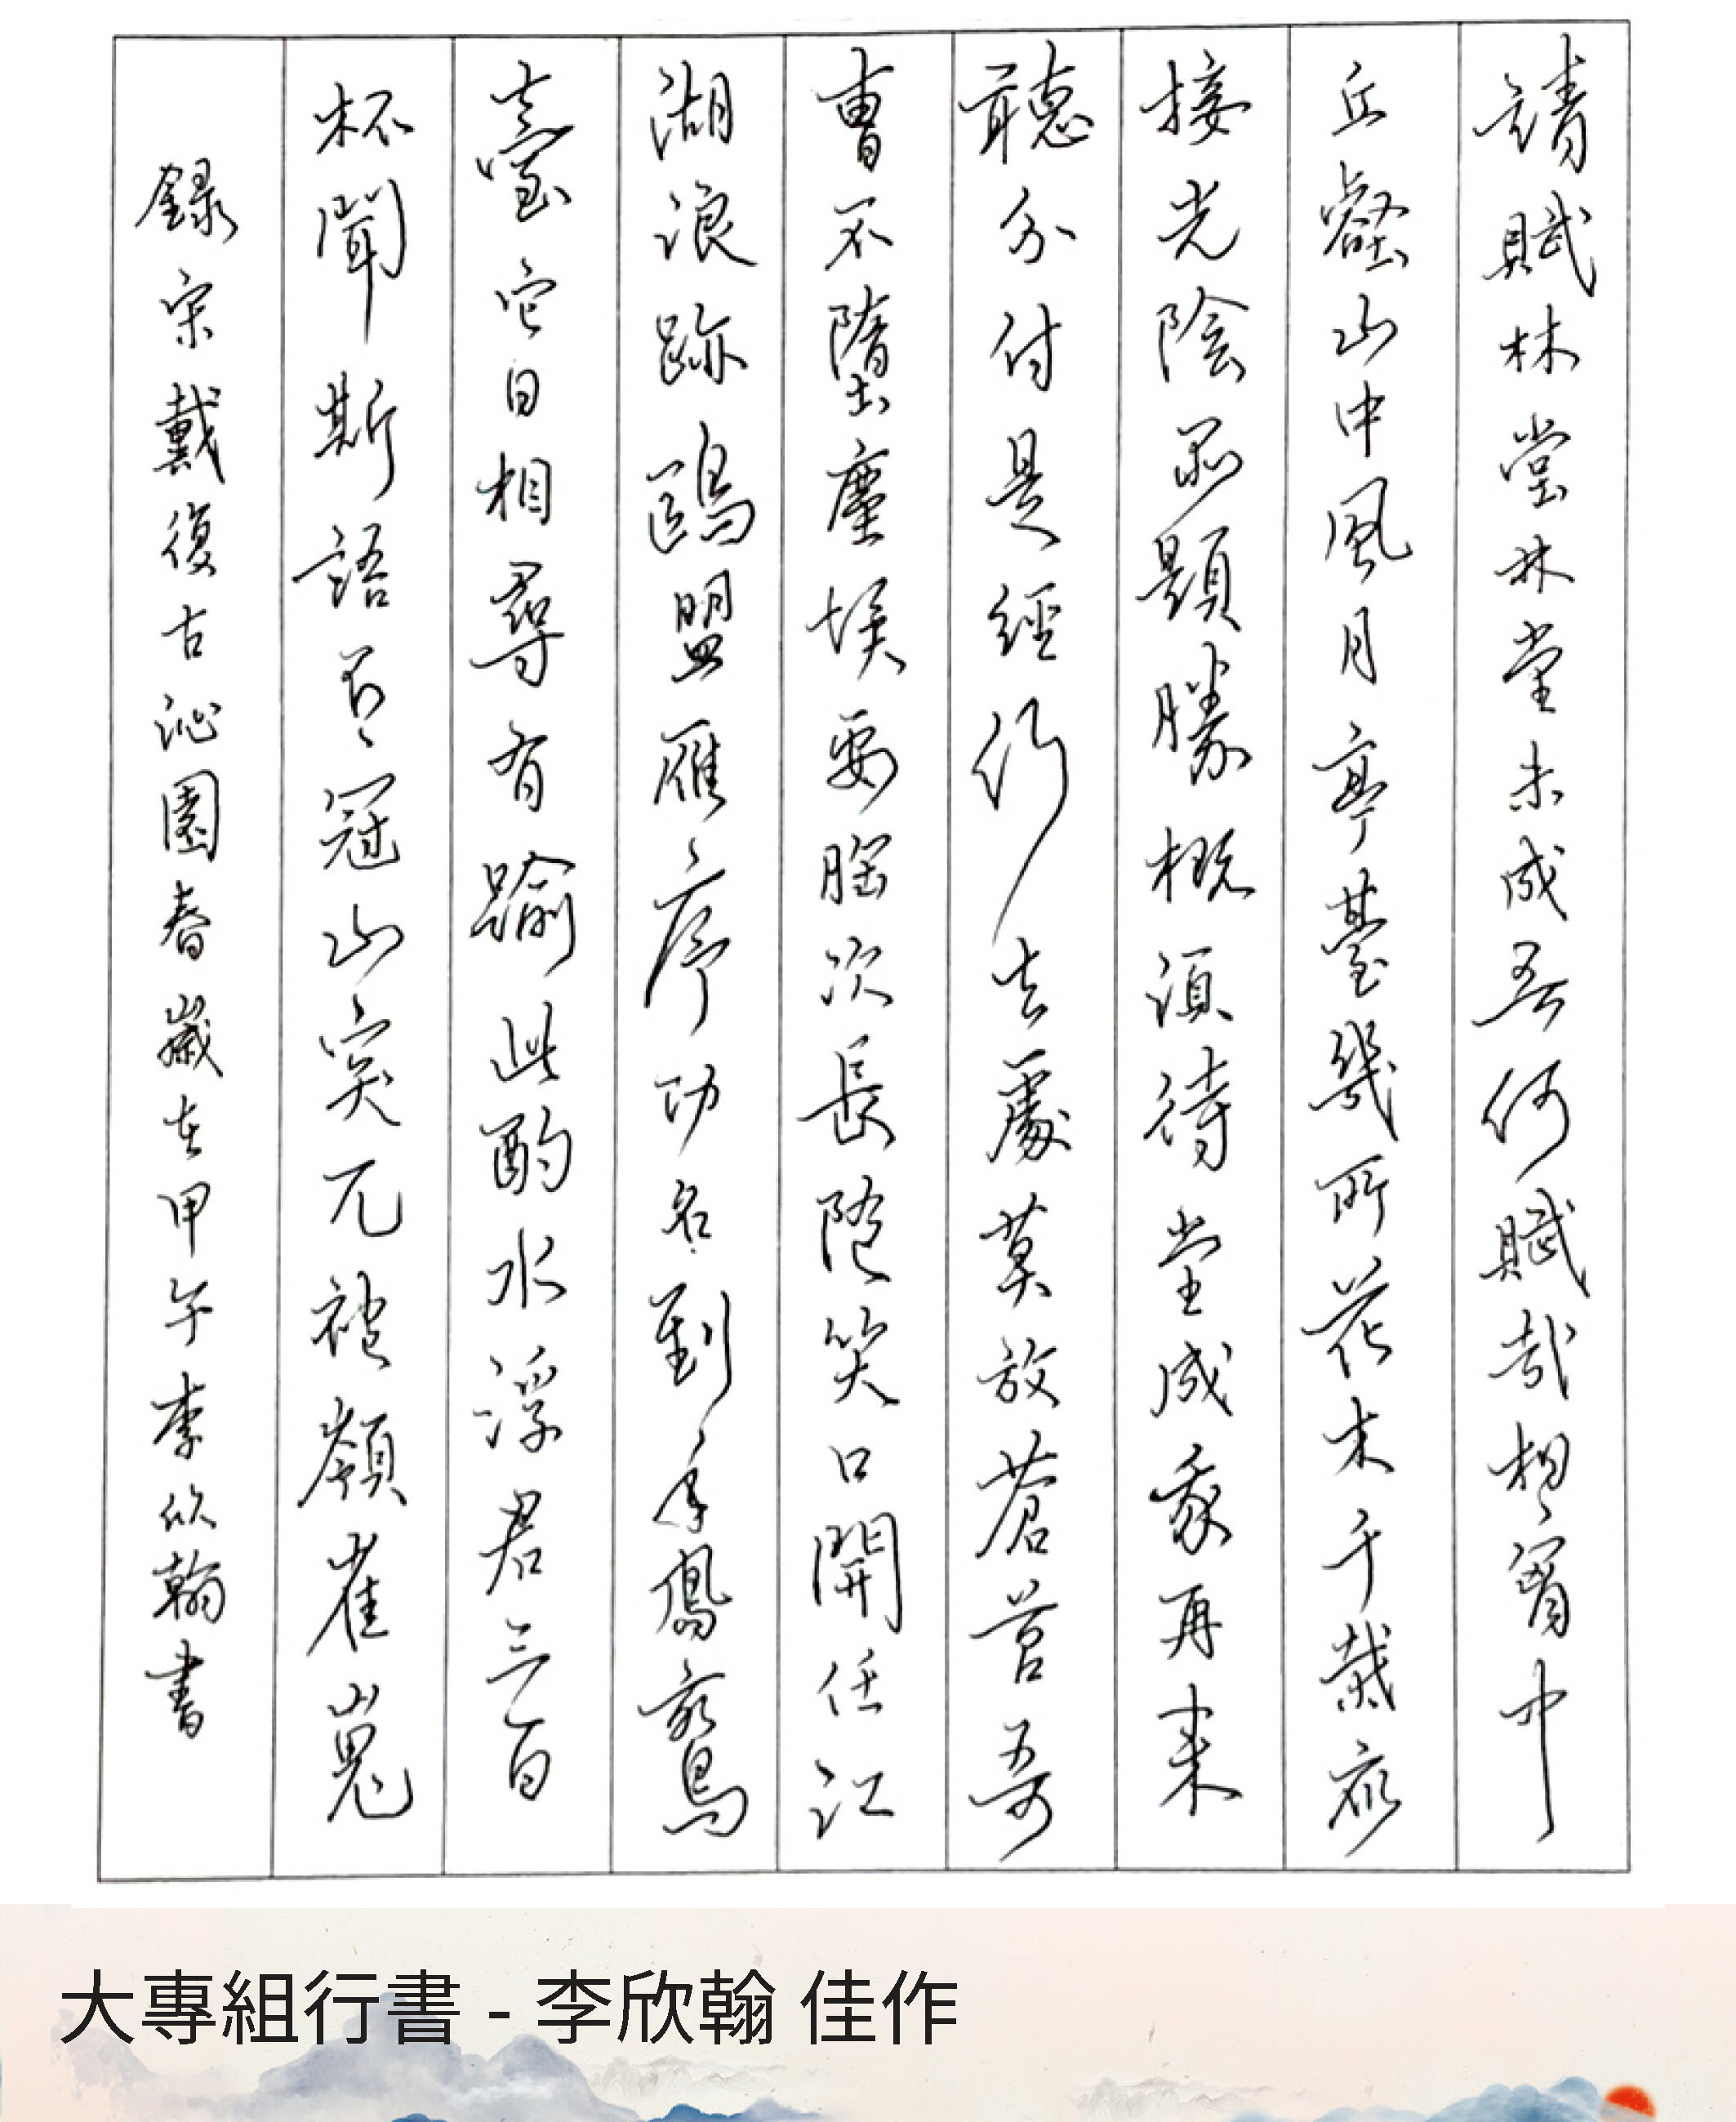 請賦林堂林堂未成吾何賦哉想胸中
丘壑山中風月亭臺幾所花木千栽衮
接光陰品題勝概須待堂成我再來
聽分付是經行去處莫放蒼苔吾
曹不墮塵埃要胸次長隨笑口開任江
湖浪跡鷗盟雁序功名到手鳳
臺它日相尋有踰此酌水浮君三百
杯聞斯語有冠山突兀
崔嵬
錄宋戴復古沁園春歲在甲午李欣翰書
大專組行書 - 李欣翰 佳作